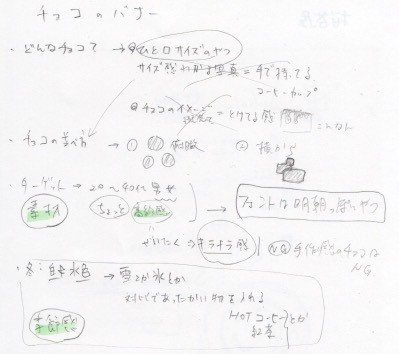 チョコのバナー
・どんなチョコで → ひと口サイズのやつ
サイズ感わかる写真 = 手で持ってる
コーヒーカップ
チョコの = とけてる感 こんなん
・チョコの並べ方 → ① 俯瞰 ② 横から
・ターゲット → 20〜40代 男女
素材 ちょっと高級感 → フォントは明朝っぽいやつ
ぜいたく → キラキラ感 NG 手作り感のチョコは NG
・冬：白や水色 → 雪とか氷とか
対比であったかい物を入れる
季節感 HOTコーヒー とか
紅茶